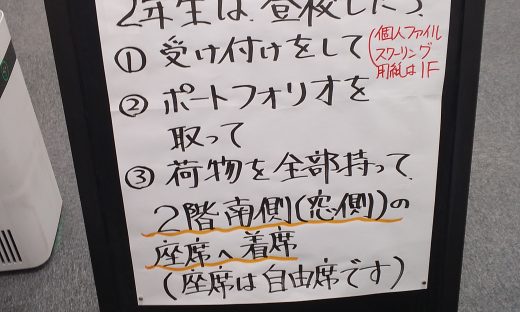 2年生は、登校したら
① 受け付けをして
(個人ファイル
スクーリング
用紙は1F
② ポートフォリオを
取って
③ 荷物を全部持って、
2階南側(窓側)の
座席へ着席
(座席は自由席です)